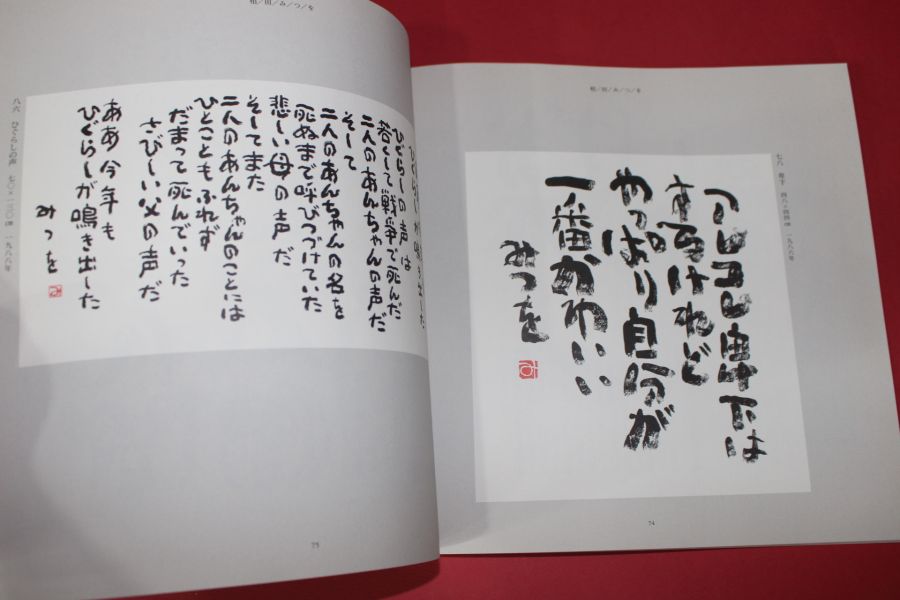 相/田/み/つ/を
アレコレ卑下は
するけれど
やっぱり自分が
一番かわいい
みつを
一九八八年
74
相/田/み/つ/を
ひぐらしの声は
若くして戦争で死んだ
二人のあんちゃんの声だ
そして
二人のあんちゃんの名を
死ぬまで呼びつづけていた
悲しい母の声だ
そしてまた
二人のあんちゃんのことには
ひとこともふれず
だまって死んでいった
さびしい父の声だ
ああ今年も
ひぐらしが鳴き出した
みつを
八六 ひぐらしの声 七〇×一三〇糎 一九八八年
75